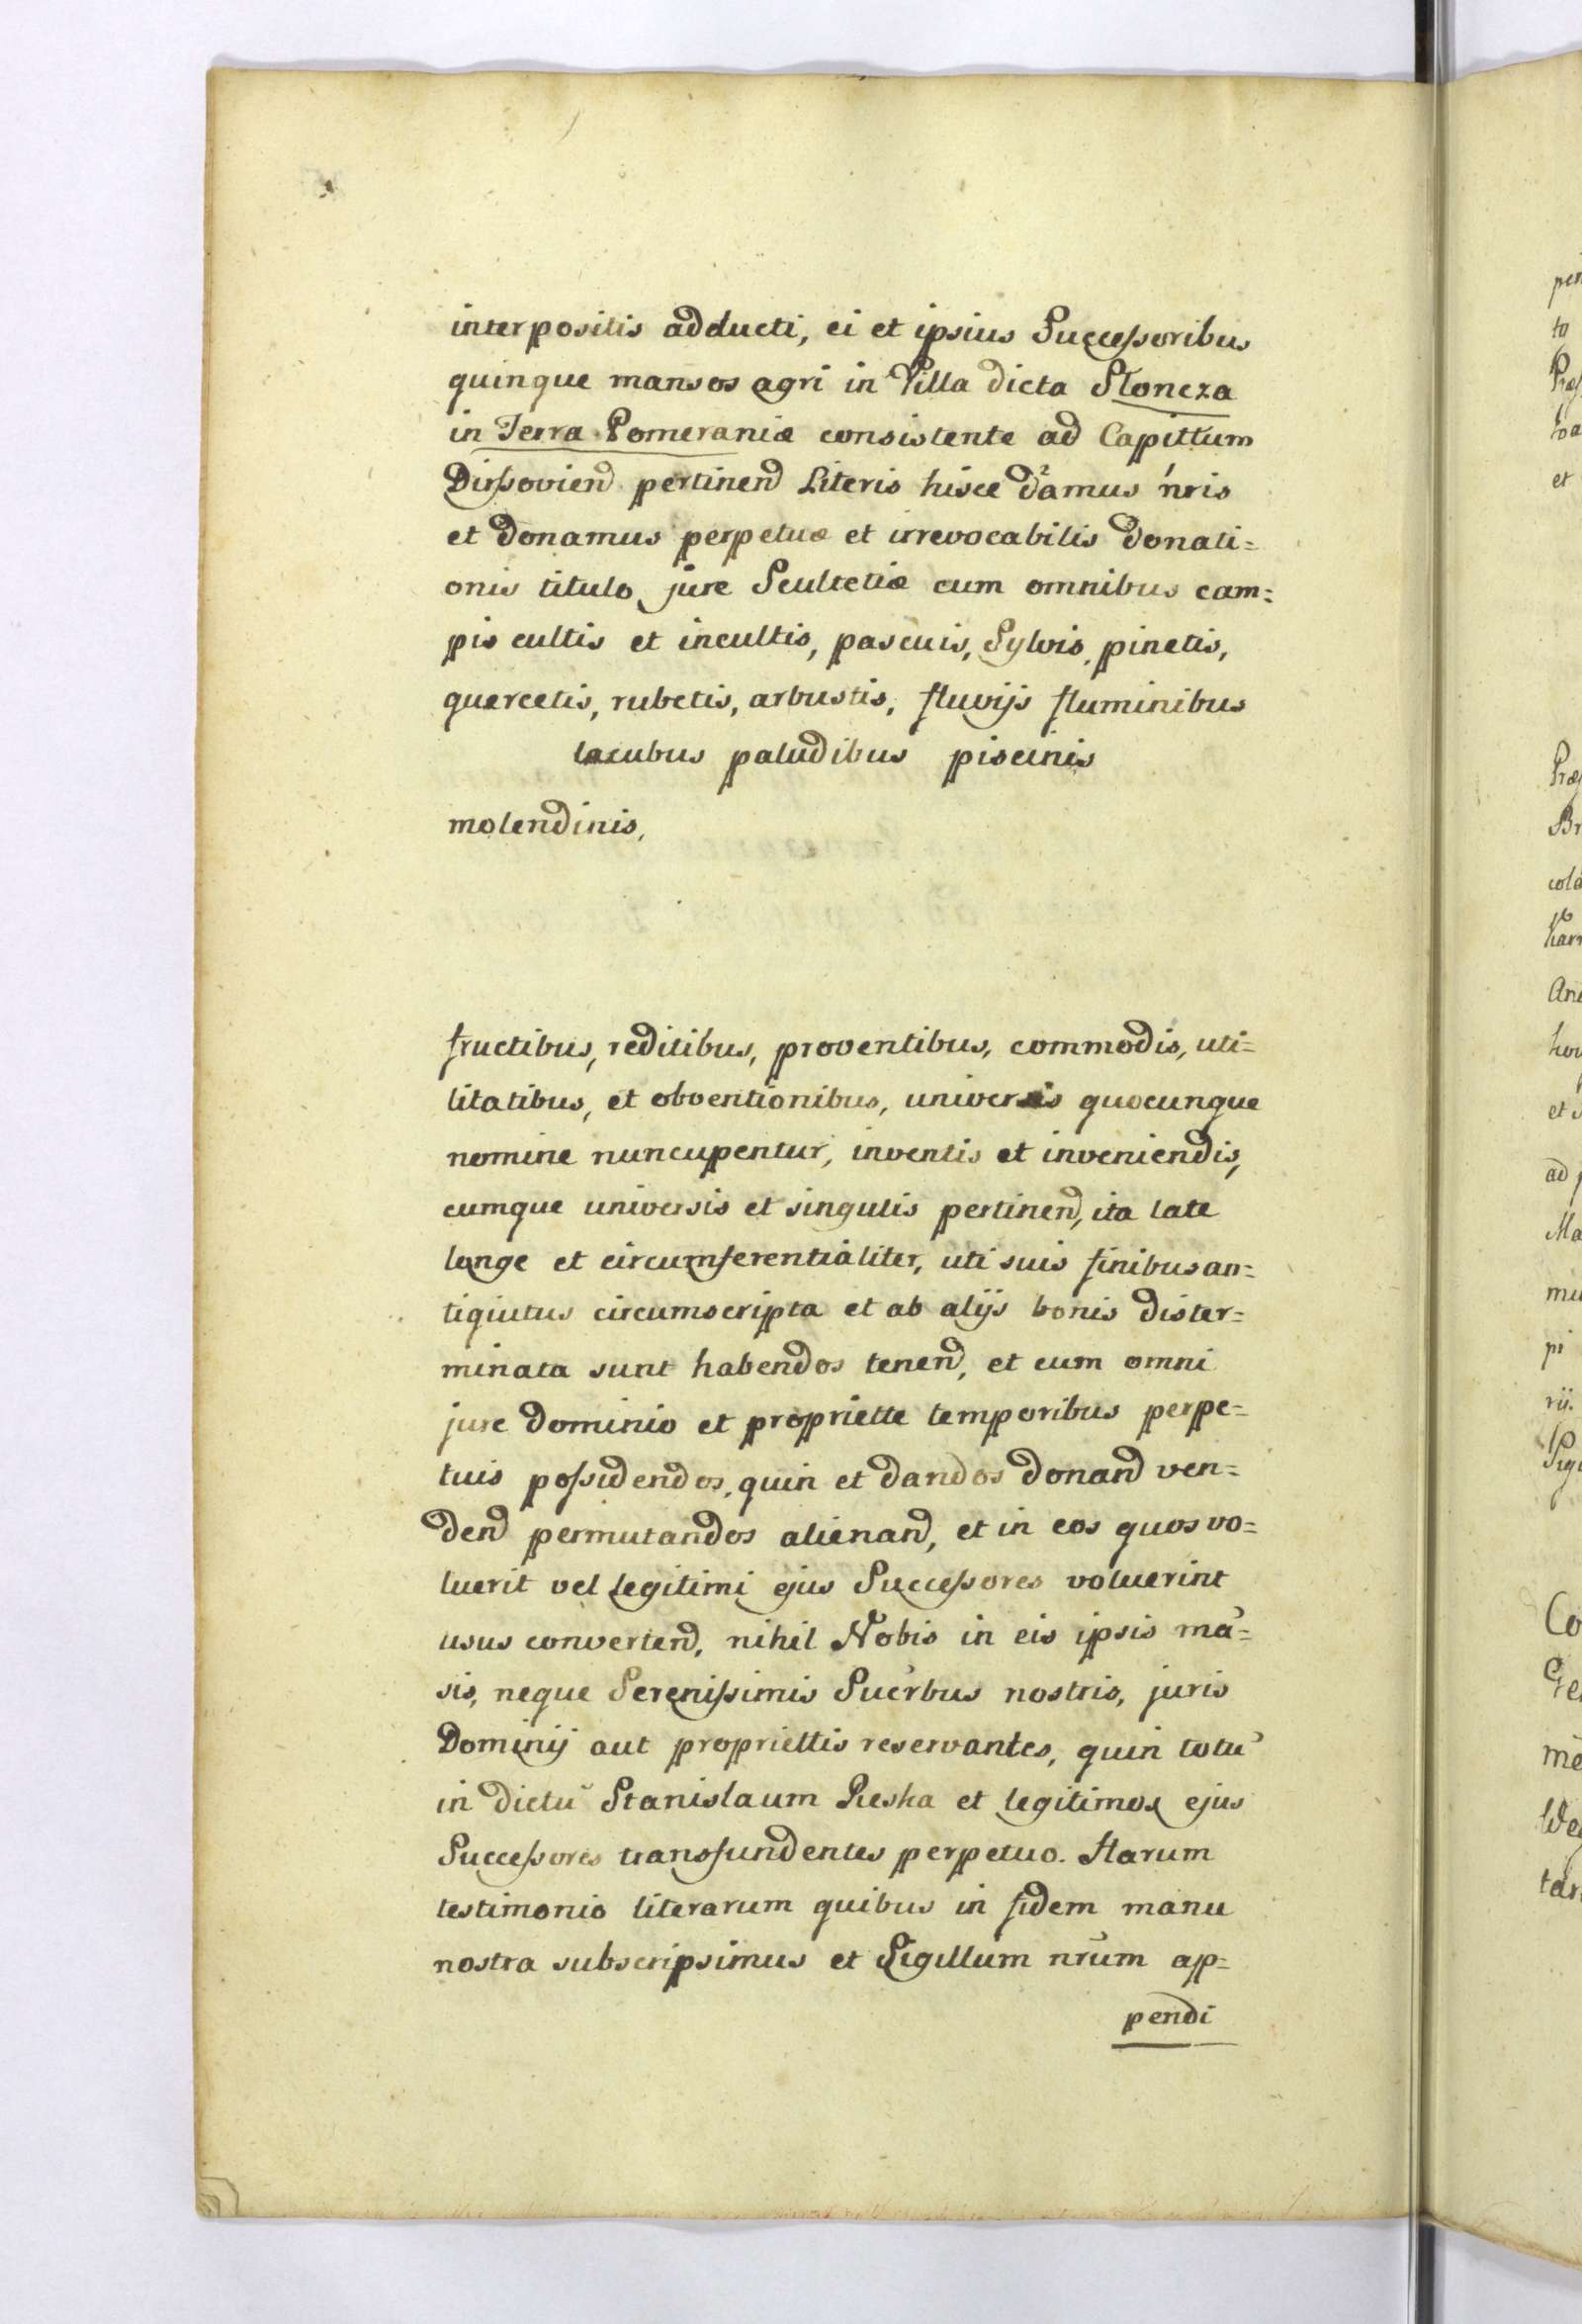 interpositis adducti, ei et ipsius Successoribus
quinque mansos agri in Villa dicta Stoncza
in Terra Pomeraniæ consistente ad Capittum
Dirsovien pertinen Literis hisce damus nris
et donamus perpetuæ et irrevocabilis donati=
onis titulo, jure Scultetiæ cum omnibus cam=
pis cultis et incultis, pascuis, Sylvis, pinetis,
quercetis, rubetis, arbustis, fluvijs fluminibus
lacubus paludibus piscinis
molendinis,
fructibus, reditibus, proventibus, commodis, uti=
litatibus, et obventionibus, universis quocunque
nomine nuncupentur, inventis et inveniendis,
cumque universis et singulis pertinen, ita late
longe et circumferentialiter, uti suis finibus an=
tiquitus circumscripta et ab alijs bonis dister=
minata sunt habendos tenend, et cum omni
jure Dominio et propriette temporibus perpe=
tuis possidendos, quin et dandos donand ven=
dend permutandos alienand, et in eos quos vo=
luerit vel legitimi ejus Successores voluerint
usus convertend, nihil Nobis in eis ipsis mã=
sis, neque Serenissimis Sucrbus nostris, juris
Dominij aut propriettis reservantes, quin totũ
in dictũ Stanislaum Reska et legitimos ejus
Successores transfundentes perpetuo. Harum
testimonio literarum quibus in fidem manu
nostra subscripsimus et Sigillum nrum ap=
pendi